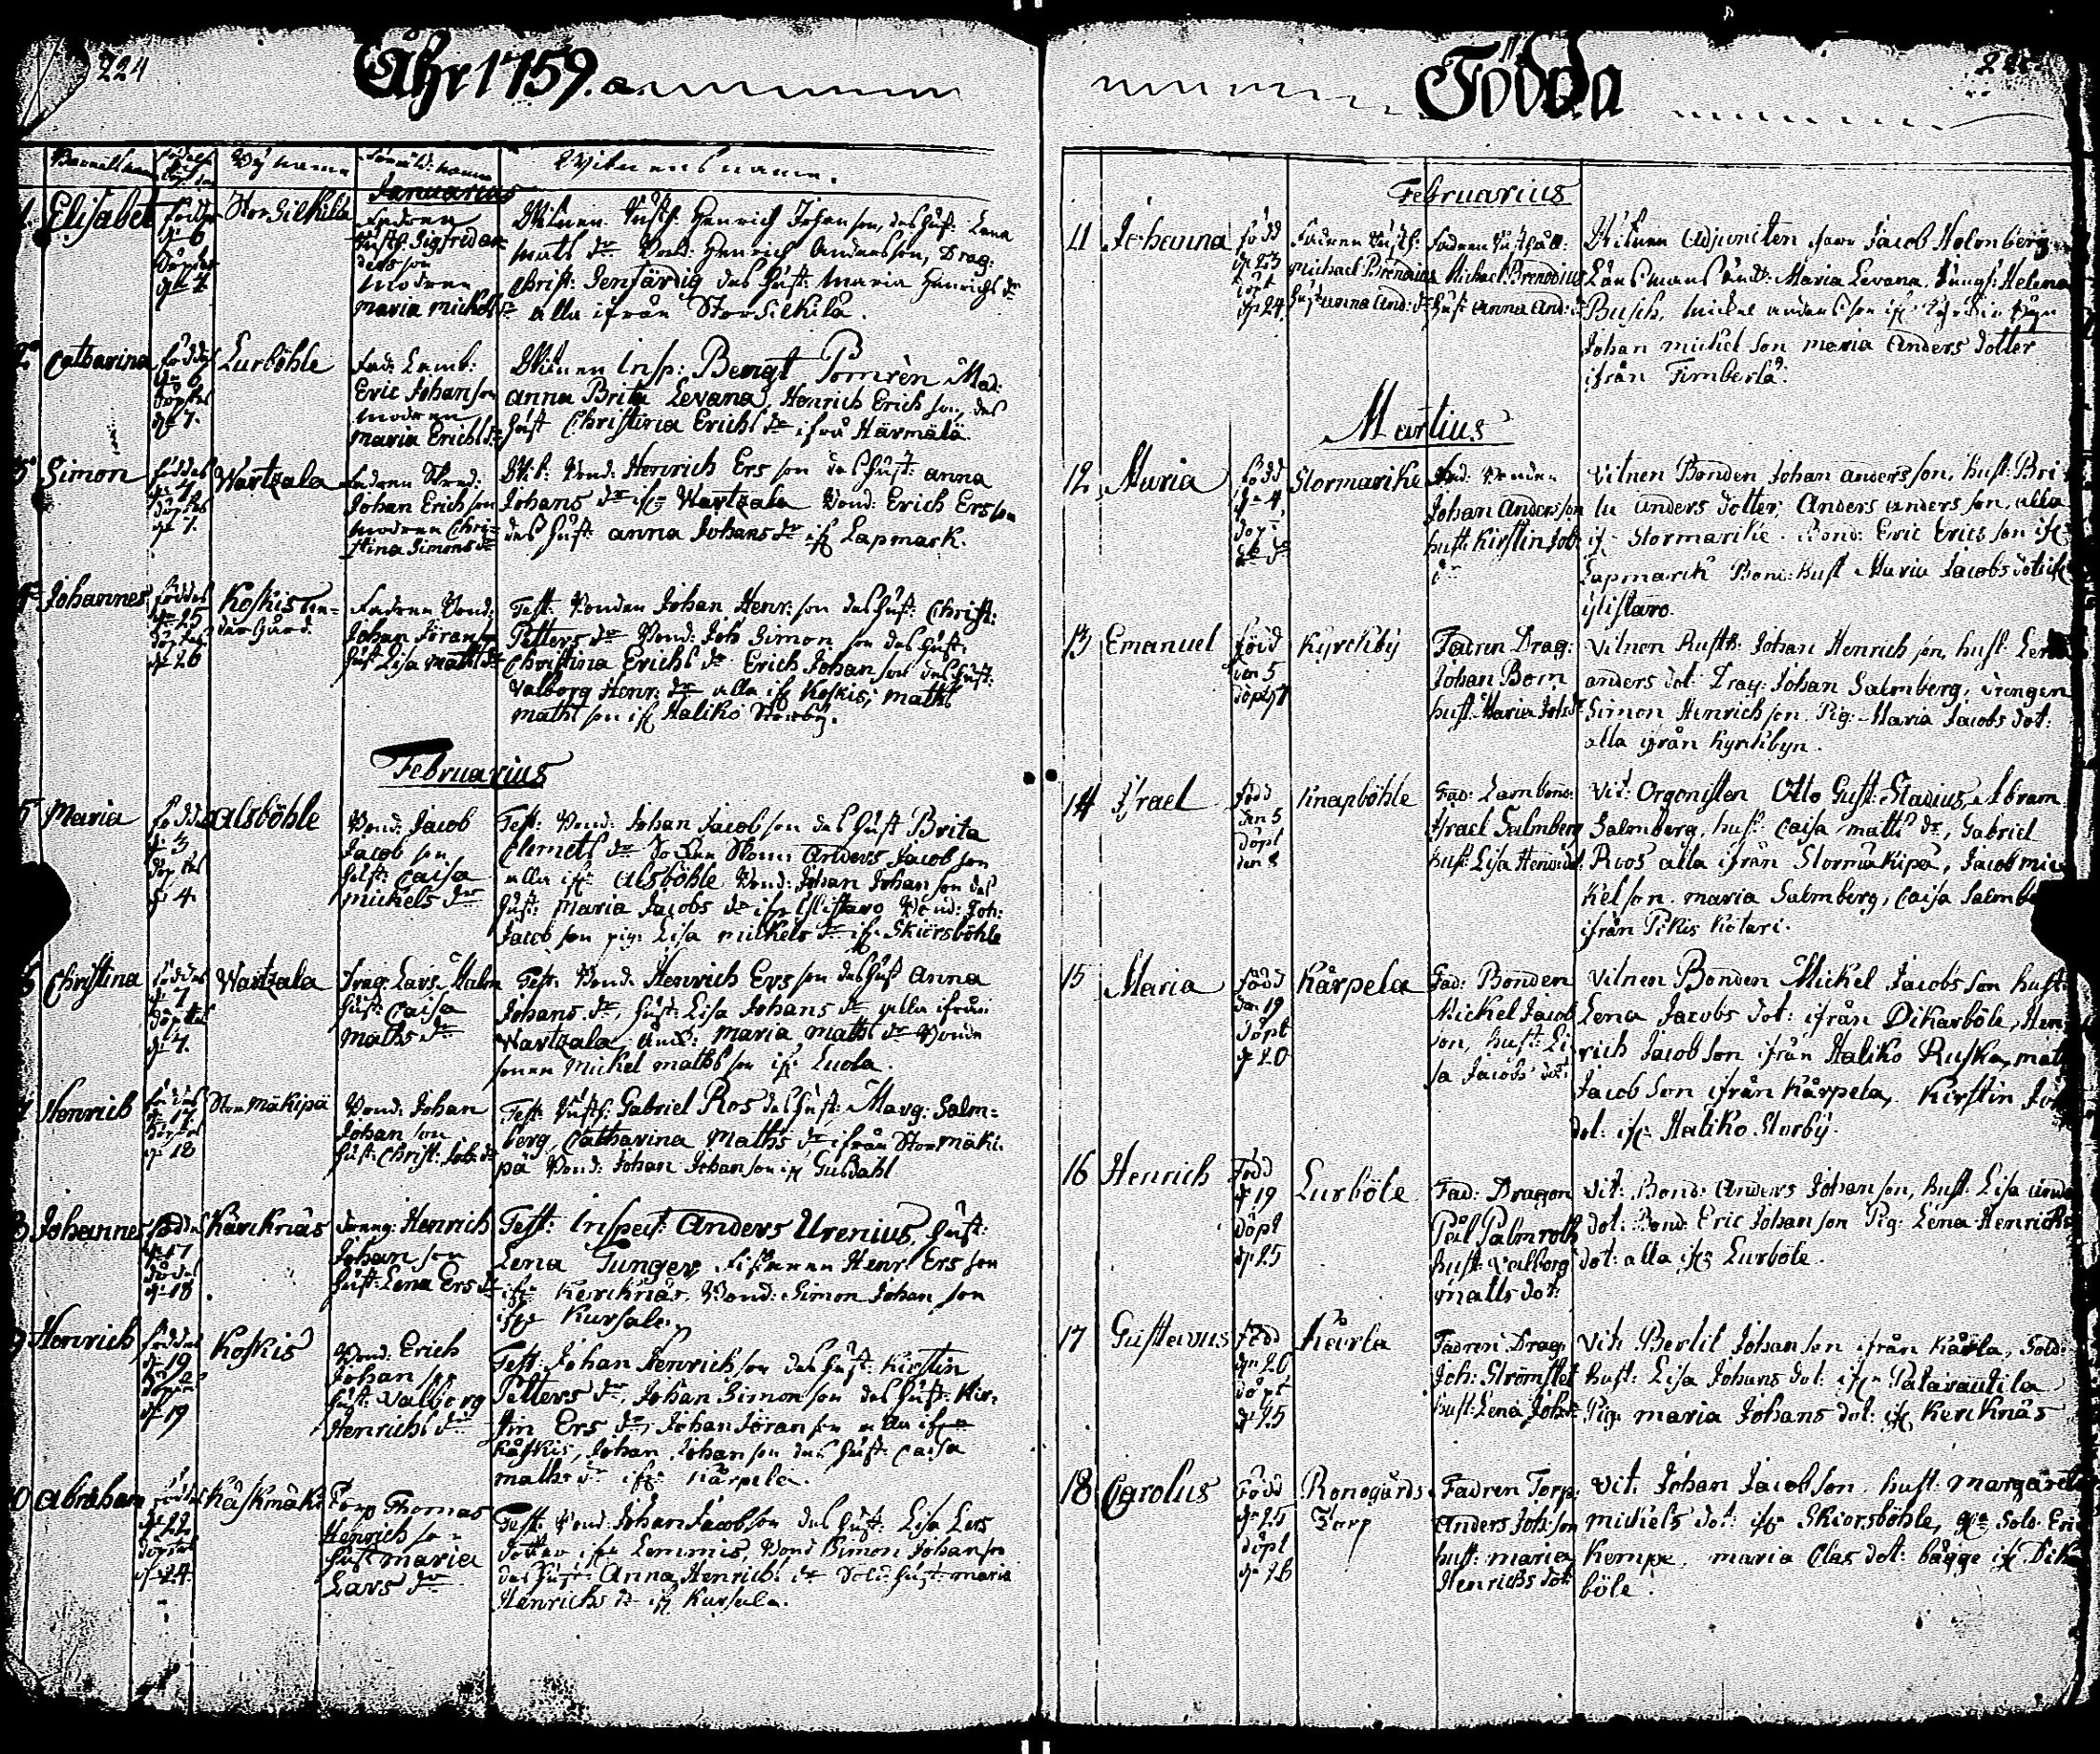 224
Åhr 1759.
Barnets namn
Födelse
Döpt dag
Bÿ namn
Föräld: namn
Witnens namn.
Januarius
1. Elisabet
Föddes
d. 6
Döptes
d. 7.
Storsilkilla
Fadren
Rusth. Sigfred An-
dersson
Modren
Maria Michels dr
Witnen Rusth. Henrich Johanson, des hust. Lena
Mats dr Bond. Henrich Andersson, Drag:
Christ: Senfärdig des hust: Maria Henrichs dr
alla ifrån Storsilkila.
2 Catharina
Föddes
d. 6
Döptes
d. 7.
Lurböhle
Fad: Lamb:
Eric Johanson
Modren
Maria Erichs dr
Witnen Insp: Bengt Pomrèn Mad:
Anna Brita Levana, Henrich Erich son, des
hust Christina Erichs dr ifrå Härmälä.
3 Simon
Föddes
d. 4
Döptes
d. 7.
Wartzala
Fadren
Johan Erichson
Modren Chri-
stina Simons dr
Wit: Bond: Henrich Ers son des hust: Anna
Johans dr ifr Wartzala Bond: Erich Ersson
des hust: Anna Johans dr ifr Lapmark.
4 Johannes
Föddes
d. 25
Döptes
d. 26
Koskis
Fadren Bond:
Johan Jöranson
hust Lisa Mats dr
Test: Bonden Johan Henr: son des hust: Christ:
Petters dr Bond: Joh Simon son des hust:
Christina Erichs dr Erich Johan son des hust:
Valborg Henr: dr alla ifr Koskis; Maths
Maths son ifr Haliko Storby.
Februarius
5 Maria
Föddes
d. 3
Döptes
d. 4.
Alsböhle
Bond: Jacob
Jacob son
hust: Caisa
Mickels dr
Test: Bond: Johan Jacob son des hust Brita
Clemets dr Anders Jacob son
alla ifr Alsböhle Bond: Johan Johan son des
hust: Maria Jacobs dr ifr Ylistaro Bond: Joh:
Jacob son pig: Lisa Mickels dr ifr Skiörsböhle
6 Christina
Föddes
d. 7
Döptes
d. 7.
Wartzala
Drag: Lars Malm
hust: Caisa
Maths dr
Test: Bond: Henrich Ers son des hust Anna
Johans dr, hust: Lisa Johans dr alla ifrån
Wartzala, Maria Maths dr Bonde
sonen Mickel Maths son ifr Luola.
7 Henrich
Föddes
d. 17
Döptes
d. 18
Stor Mäkipä
Bond: Johan
Johan son
hust: Christ: Joh: dr
Test: Rusth: Gabriel Ros des hust: Marg: Salm-
berg, Catharina Maths dr ifrån Stormäki-
pä Bond: Johan Johanson ifr Gusdahl
8 Johannes
Föddes
d. 17
d. 18
Kärcknäs
Dreng: Henrich
Johan son
hust: Lena Ers dr
Test: Inspect: Anders Urenius, hust:
Lena Tunger, Henr: Ers son
ifr Kercknäs, Bond: Simon Johan son
ifr Kursala.
9 Henrich
Föddes
d. 19
d. 19
Koskis
Bond: Erich
Johan son
hust: Valborg
Henrichs dr
Test: Johan Henrich son des hust: Kirstin
Petters dr, Johan Simon son des hust: Kir-
stin Ers dr, Johan Jöran son alla ifr
Koskis, Johan Johan son des hust: Caisa
Maths dr ifr Kärpela.
10 Abraham
Föddes
d. 22
Döptes
d. 24.
Käskmäki
Torp Thomas
Henrich son
hust Maria
Lars dr
Test: Bond: Johan Jacobson des hust: Lisa Lars
dotter ifr Lemmis, Bond Simon Johanson
des hust: Anna Henrichs dr Sold: hust: Maria
Henrichs dr ifr Kursala.
Födda
Februarius
11 Johanna
Född
d. 23
Döpt
d. 24
Fadren Rusth:
Michael Brenodius
hust Anna And: dr
Fadren Rusthåll:
Michael Brenodius
hust Anna And: dr
Witnen Adjuncten Herr Jacob Holmberg
Länsmans Maria Levana, Jungf: Helena
Busch, Mickel Andersson
Johan Michel son Maria Anders dotter
ifrån Fimberla.
Martius
12. Maria
Född
d. 4
döpt
Stormarike
Fad: Bonden
Johan Andersson
hust: Kirstin Joh:
dr
Vitnen Bonden Johan Andersson, hust: Bri-
ta Anders dotter, Anders Andersson, alla
ifr Stormarike. Bond: Eric Ericsson ifr
Lapmarck Bond: hust Maria Jacobs dot: ifr
Ylistaro.
13 Emanuel
Född
den 5
döpt d 7
Kyrckbÿ
Fadren Drag:
Johan Born
hust: Maria Joh: dr
Vitnen Rusth: Johan Henrich son, hust: Lena
Anders dot: Drag: Johan Salmberg, Drengen
Simon Henrichson, Pig: Maria Jacobs dot:
alla ifrån Kyrckbyn.
14 Israel
Född
den 5
döpt
den 8
Knapböhle
Fad: Lambond:
Israel Salmberg
hust: Lisa Henr: dot:
Vit: Orgonisten Otto Gust: Stadius, Abram
Salmberg, hust: Caisa Matts dr, Gabriel
Roos alla ifrån Stormäkipä, Jacob Mic-
kelson. Maria Salmberg, Caisa Salmbe
ifrån Pikis Kötari.
15 Maria
Född
den 19
Döpt
d. 20
Kärpela
Fad: Bonden
Mickel Jacob
son, hust: Li-
sa Jacobs dot:
Vitnen Bonden Mickel Jacobs son hust:
Lena Jacobs dot: ifrån Dikarböle, Hen-
rich Jacobson ifrån Haliko Ruska, Mat
Jacob son ifrån Kärpela, Kirstin Jö
dot: ifr Haliko Storbÿ.
16 Henrich
Född
d. 19
Döpt
d. 25
Lurböle
Fad: Dragon
Pål Palmroth
hust: Valborg
Matts dot:
Vit: Bond: Anders Johanson, hust: Lisa Ande
dot: Bond: Eric Johanson Pig: Lena Henrichs
dot: alla ifr Lurböle.
17 Gustavus
Född
d. 20
döpt
d. 25
Kårla
Fadren Drag:
Joh: Strömstet
hust: Lena Joh: dr
Vit: Bertil Johanson ifrån Kårla, Sold:
hust: Lisa Johans dot: ifr Patarautila
Pig: Maria Johans dot: ifr Kercknäs
18 Carolus
Född
d. 25
döpt
d. 26
Ronogårds
Torp
Fadren Torp:
Anders Joh: son
hust: Maria
Henrichs dot:
Vit: Johan Jacobson. hust: Margareta
Mickels dot: ifr Skiorsböhle, Sold: Eric
Kempe. Maria Clas dot: bägge ifr Dik
böle.